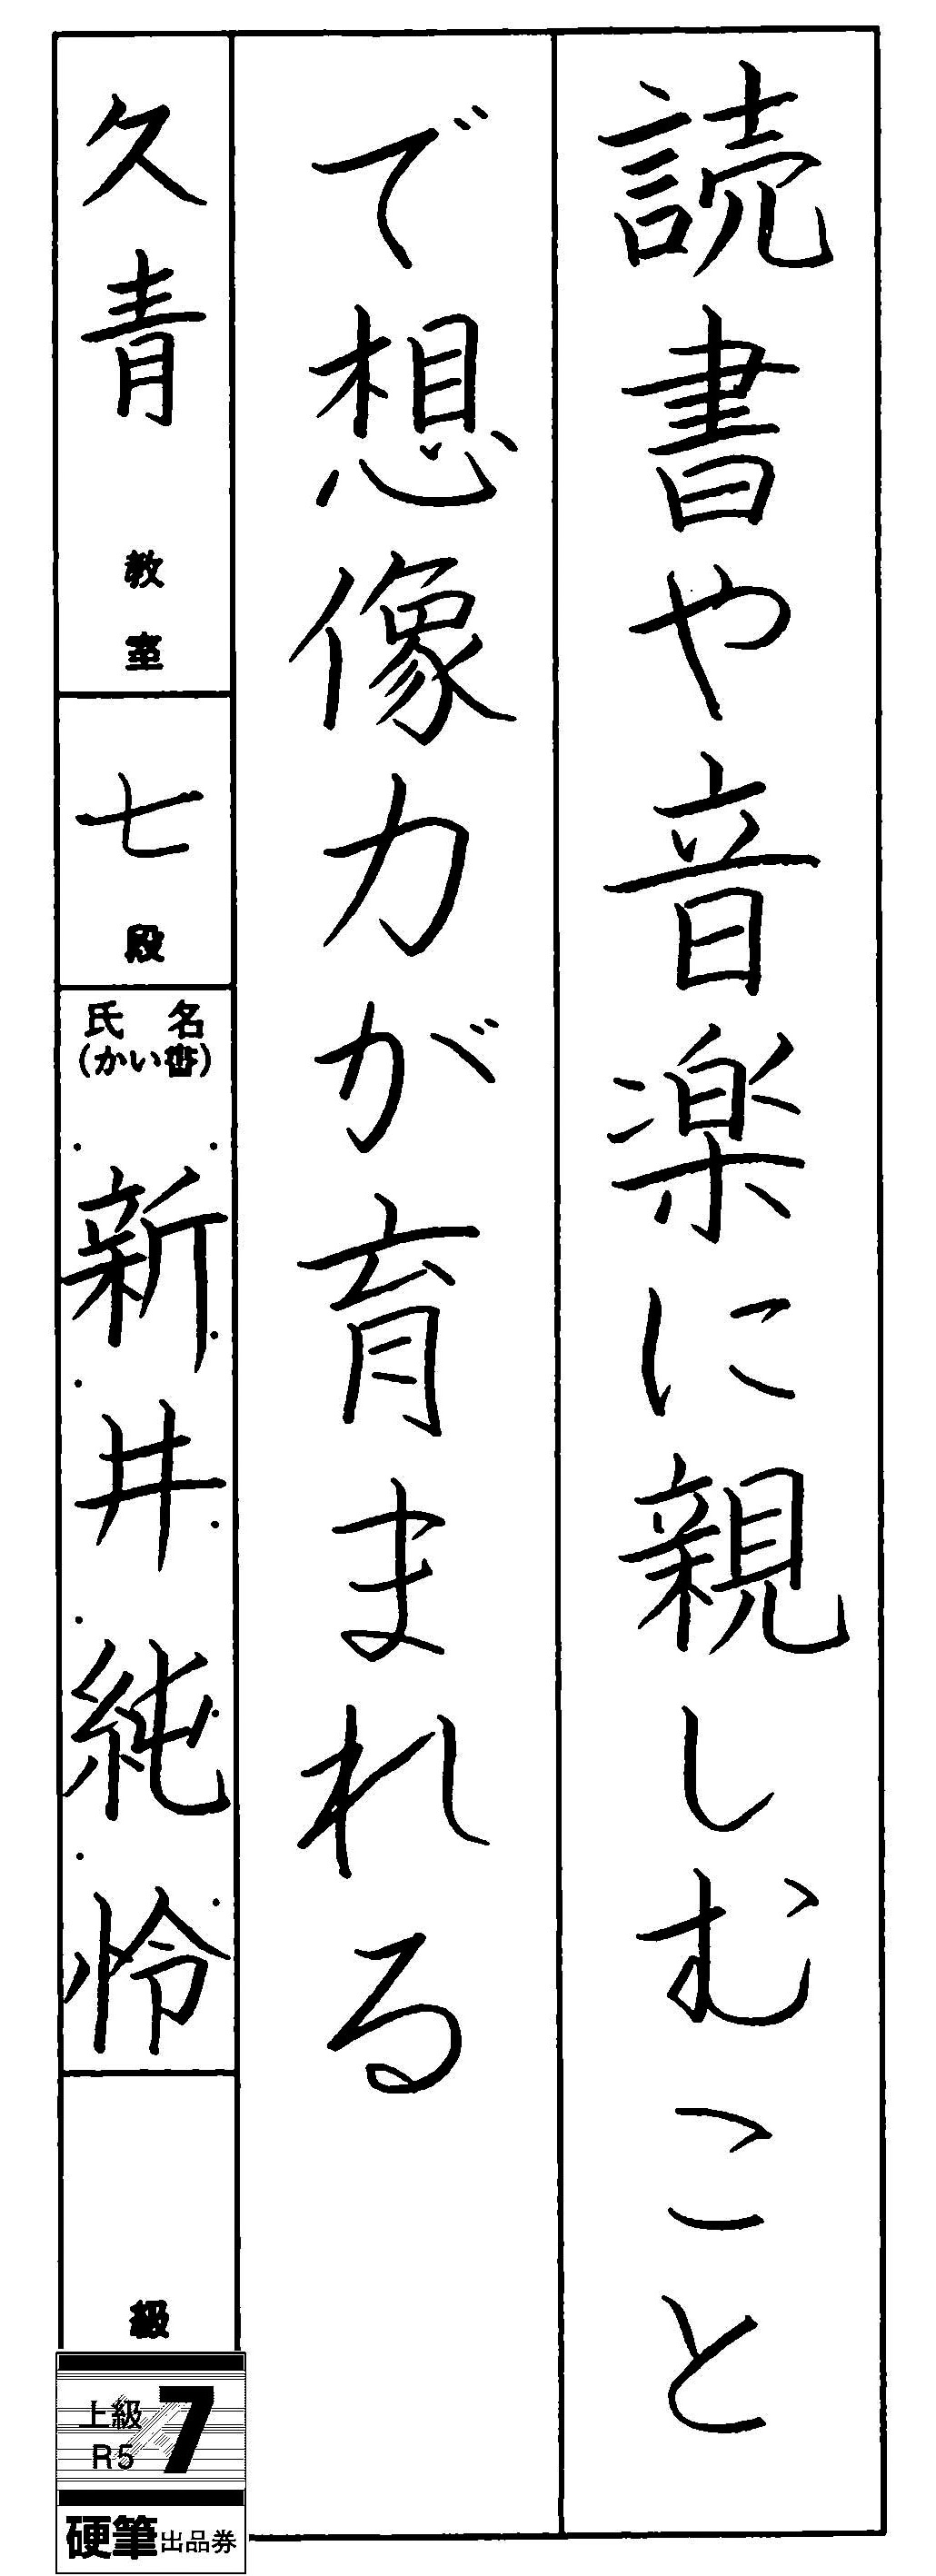 読書や音楽に親しむこと
で想像力が育まれる
久青 教室
七 段
氏名
(かい書)
新井純怜
級
上級
R5
7
硬筆出品券